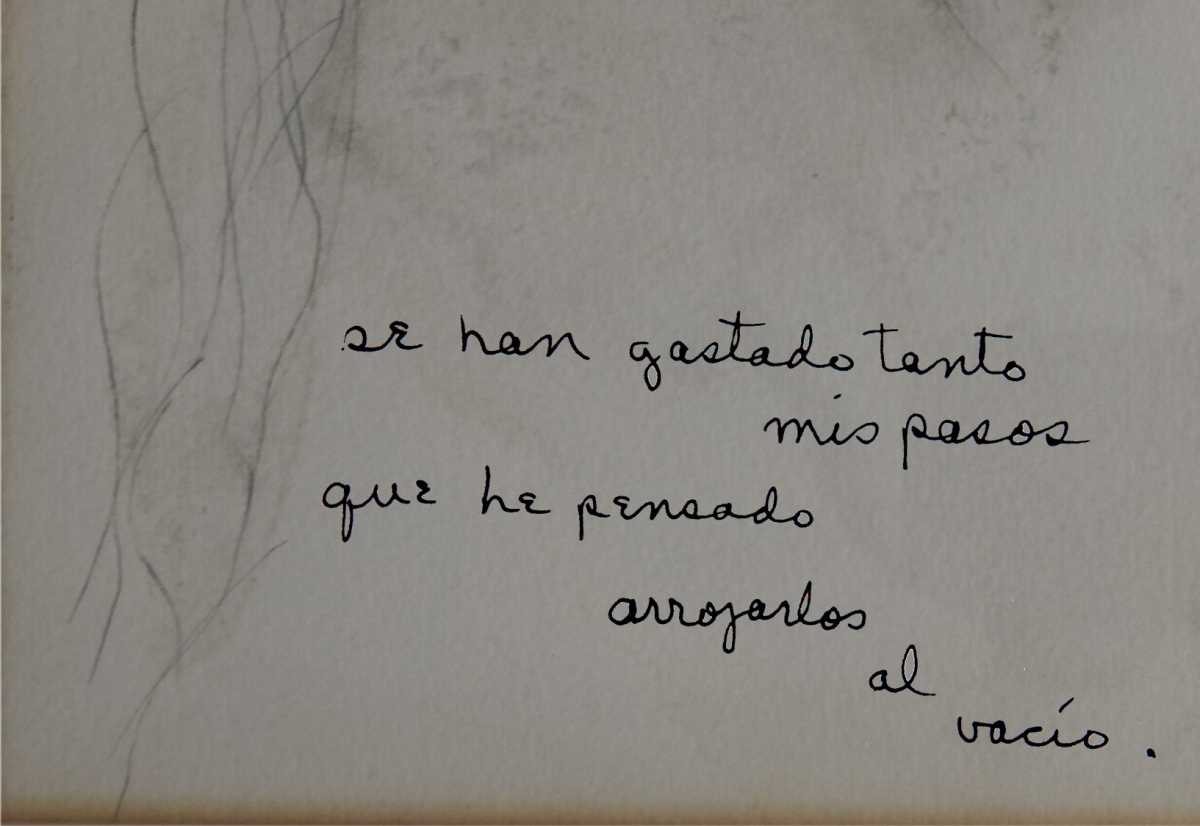 se han gastado tanto
mis pasos
que he pensado
arrojarlos
al
vacío.